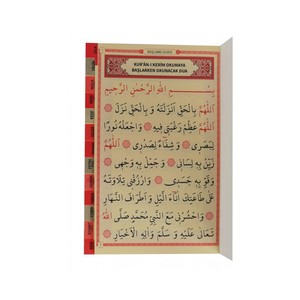 KUR'ÂN-I KERİM OKUMAYA
BAŞLARKEN OKUNACAK DUA
بِسْمِ اللّٰهِ الرَّحْمٰنِ الرَّحِيمِ
اَللّٰهُمَّ بِالْحَقِّ اَنْزَلْتَهُ وَ بِالْحَقِّ نَزَلَ
اَللّٰهُمَّ عَظِّمْ رَغْبَتِى فِيهِ وَاجْعَلْهُ نُورًا
لِبَصَرِى وَ شِفَاءً لِصَدْرِى اَللّٰهُمَّ
زَيِّنْ بِهِ لِسَانِى وَ جَمِّلْ بِهِ وَجْهِى
وَقَوِّ بِهِ جَسَدِى وَارْزُقْنِى تِلَاوَتَهُ
عَلٰى طَاعَتِكَ اٰنَاءَ الَّيْلِ وَ اَطْرَافَ النَّهَارِ
وَاحْشُرْنِى مَعَ النَّبِىِّ مُحَمَّدٍ صَلَّى اللّٰهُ
تَعَالٰى عَلَيْهِ وَ سَلَّمَ وَاٰلِهِ الْاَخْيَارِ